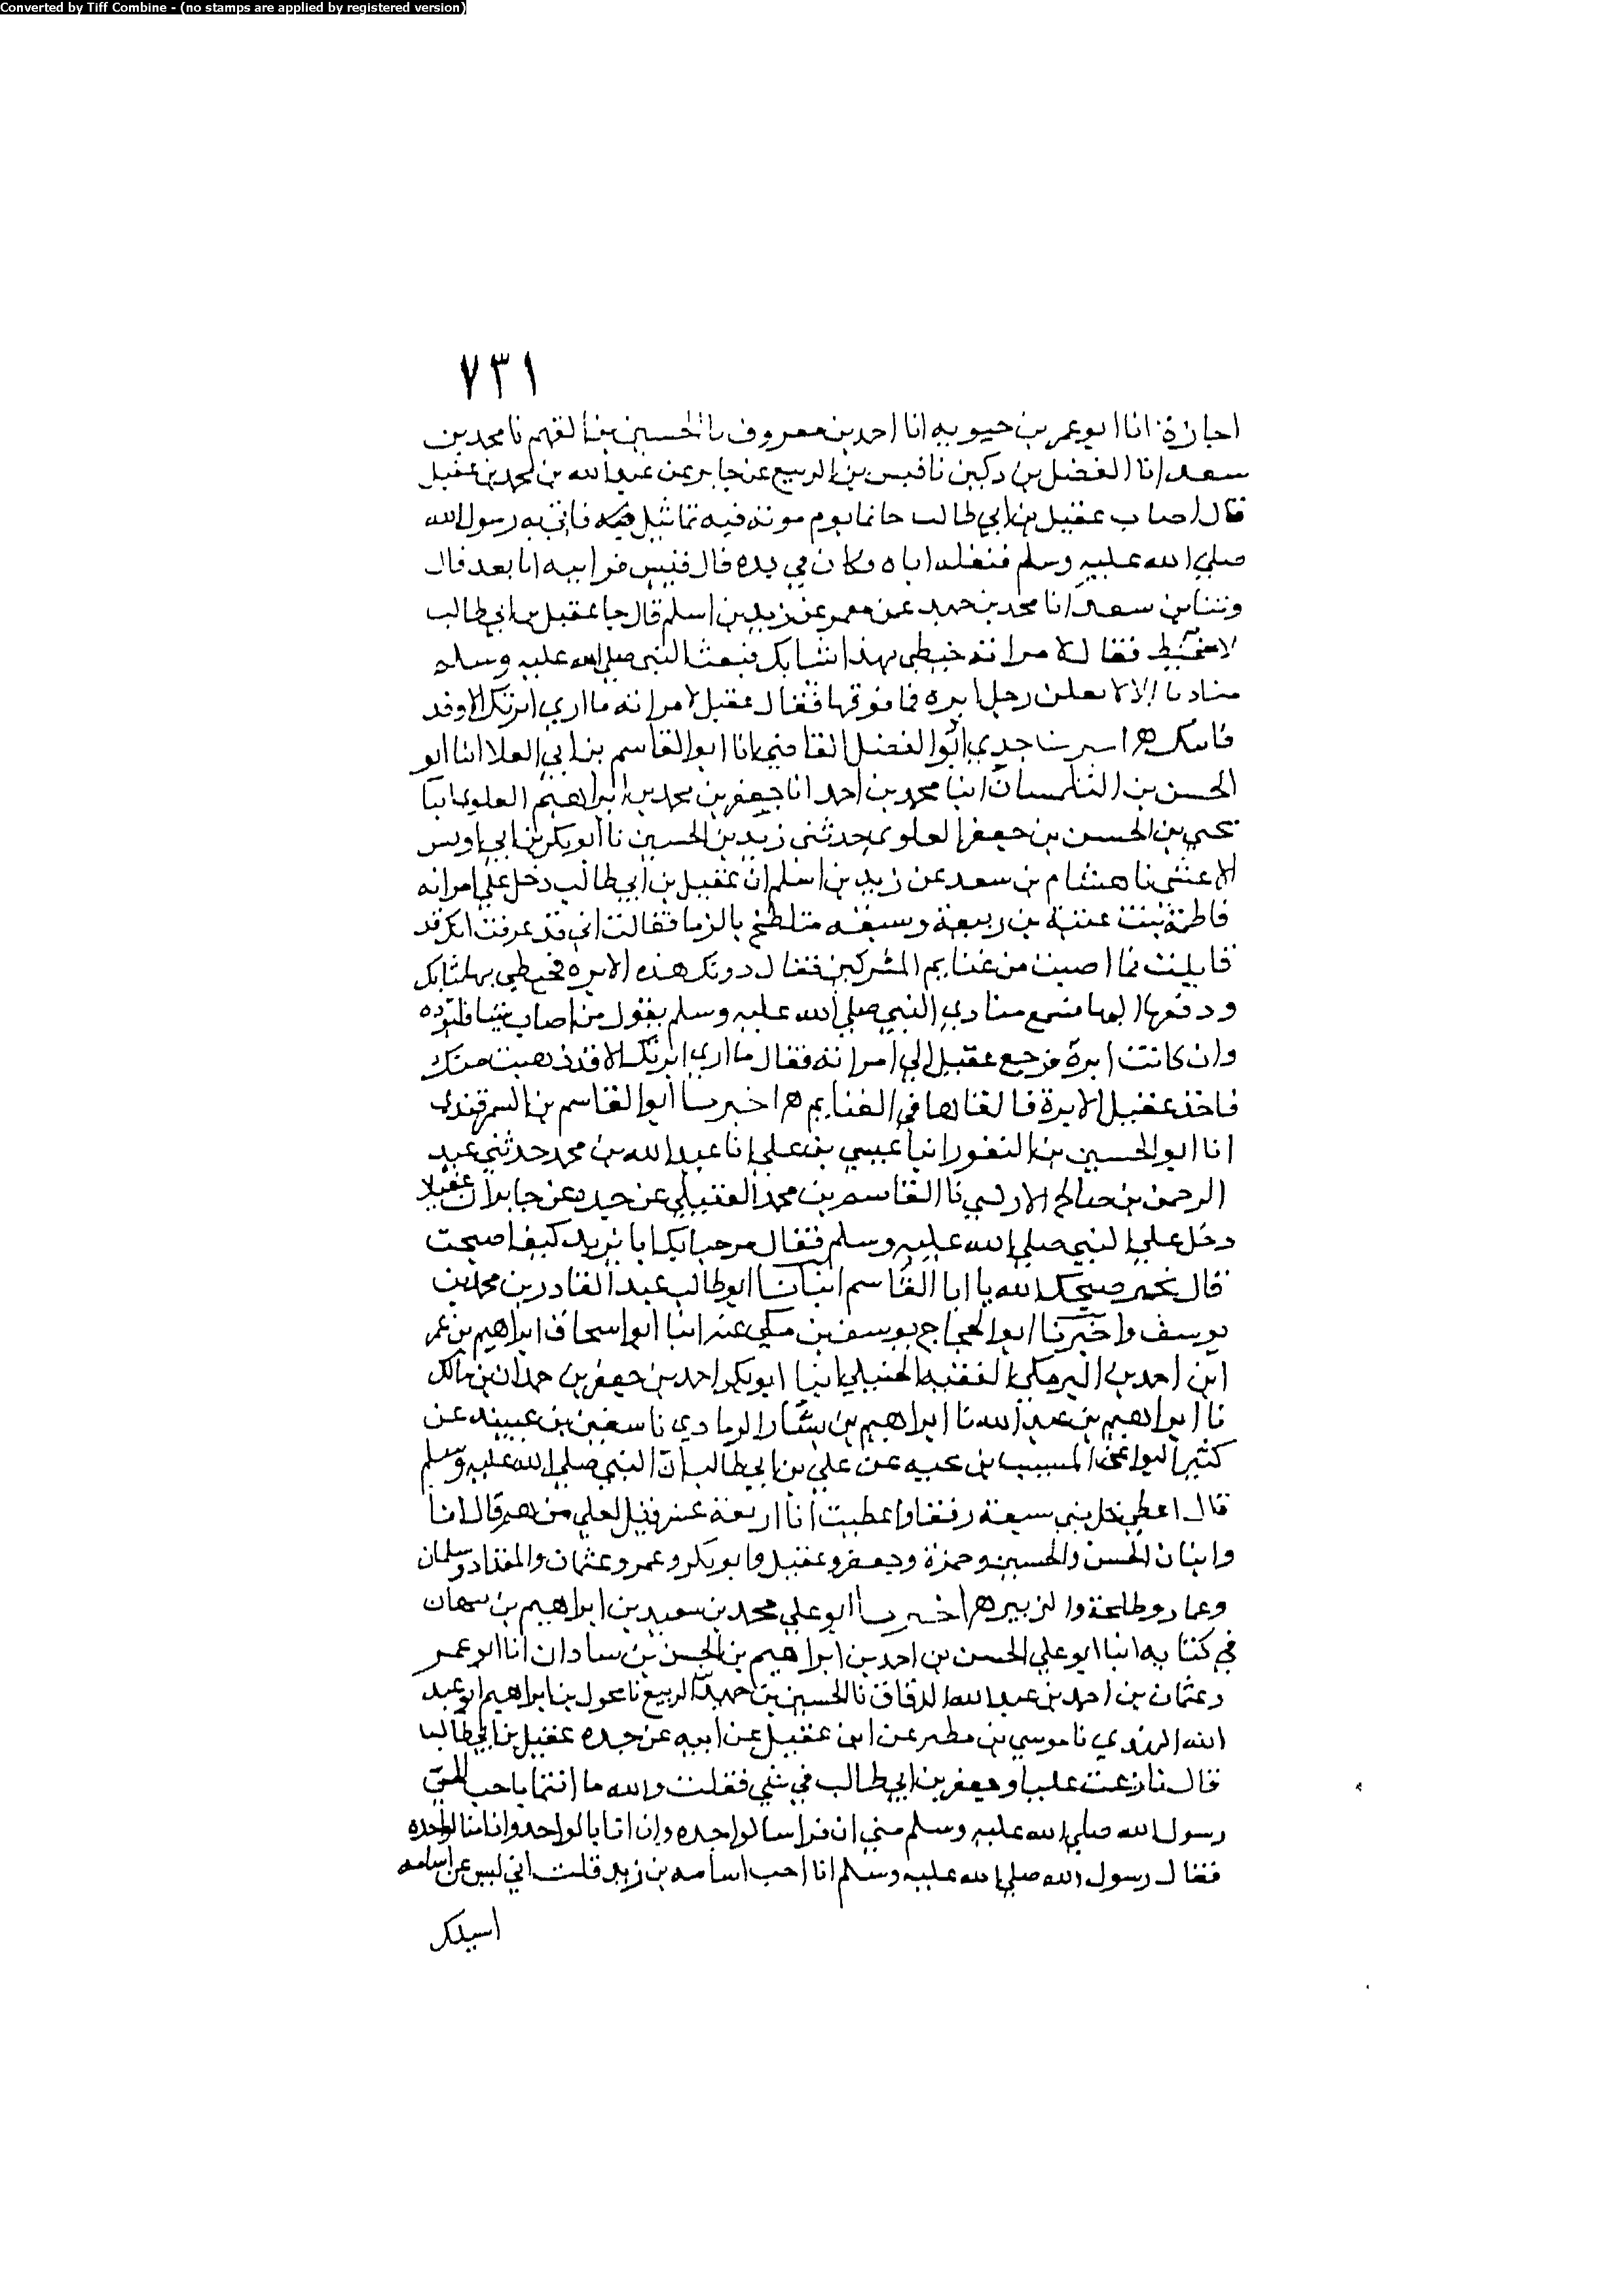 Converted by Tiff Combine - (no stamps are applied by registered version)
٧٣١
اجازة انا ابو عمر بن حيويه انا احمد بن معروف نا الحسين بن الفهم نا محمد بن
سعد انا الفضل بن دكين نا قيس بن الربيع عن جابر عن عبد الله بن محمد بن عقيل
قال اصاب عقيل بن ابي طالب خاتما يوم موته فيه تماثيل فاتى به رسول الله
صلي الله عليه وسلم فنفله اياه فكان في يده قال قيس فرايته انا بعد قال
وثنا بن سعد انا محمد بن حميد عن معمر عن زيد بن اسلم قال جا عقيل بن ابي طالب
فقال لامراته خيطي بهذا ثيابك فبعث النبي صلي الله عليه وسلم
مناديا الا لا يغلن رجل ابره فما فوقها فقال عقيل لامراته ما اري ابرتك الا وقد
فاتتك ه اخبرنا جدي ابو الفضل القاضي انا ابو القاسم بن ابي العلا انا ابو
الحسن بن انبا محمد بن احمد انا جعفر بن محمد بن ابراهيم العلوي انبا
يحيي بن الحسن بن جعفر العلوي حدثني زيد بن الحسين نا ابو بكر بن ابي اويس
الاعشي نا هشام بن سعد عن زيد بن اسلم ان عقيل بن ابي طالب دخل علي امراته
فاطمة بنت عتبة بن ربيعة وسيفه متلطخ بالدما فقالت اني قد عرفت انك قد
قاتلت فما اصبت من غنايم المشركين فقال دونك هذه الابرة فخيطي بها ثيابك
ودفعها اليها فسمع منادي النبي صلي الله عليه وسلم يقول من اصاب شيئا فليرده
وان كانت ابرة فرجع عقيل الي امراته فقال ما اري ابرتك الا قد ذهبت منك
فاخذ عقيل الابرة فالقاها في الغنايم ه اخبرنا ابو القاسم بن السمرقندي
انا ابو الحسين بن النقور انبا عيسي بن علي انا عبد الله بن محمد حدثني عبد
الرحمن بن صالح الازدي نا القاسم بن محمد العقيلي عن جده عن جابر ان عقيلا
دخل علي النبي صلي الله عليه وسلم فقال مرحبا بك ابا يزيد كيف اصبحت
قال بخير صبحك الله يا ابا القاسم انبانا ابو طالب عبد القادر بن محمد بن
يوسف واخبرنا ابو الحجاج يوسف بن مكي عنه انبا ابو اسحاق ابراهيم بن عمر
ابن احمد البرمكي الفقيه الحنبلي انبا ابو بكر احمد بن جعفر بن حمدان بن مالك
نا ابراهيم بن عبد الله نا ابراهيم بن بشار الرمادي نا سفين بن عيينه عن
كثير النوا عن المسيب بن نجيه عن علي بن ابي طالب ان النبي صلي الله عليه وسلم
قال اعطي كل نبي سبعة رفقا واعطيت انا اربعة عشر فقيل لعلي من هم قال انا
وابنان الحسن والحسين وحمزة وجعفر وعقيل وابو بكر وعمر وعثمان والمقداد وسلمان
وعمار وطلحة والزبير ه اخبرنا ابو علي محمد بن سعيد بن ابراهيم بن نبهان
في كتابه انبا ابو علي الحسن بن احمد بن ابراهيم بن الحسن بن شاذان انا ابو عمر
وعثمان بن احمد بن عبد الله الدقاق نا الحسين بن حميد الربيع نا مخول بن ابراهيم ابو عبد
الله النهدي نا موسي بن مطير عن ابن عقيل عن ابيه عن جده عقيل بن ابي طالب
قال نازعت عليا وجعفر بن ابي طالب في شي فقلت والله ما انتما باحب الي
رسول الله صلي الله عليه وسلم مني ان قرابتنا لواحده وان ابانا لواحد وان امنا لواحده
فقال رسول الله صلي الله عليه وسلم انا احب اسامه بن زيد قلت اني ليس عن اسامه
اسيلك